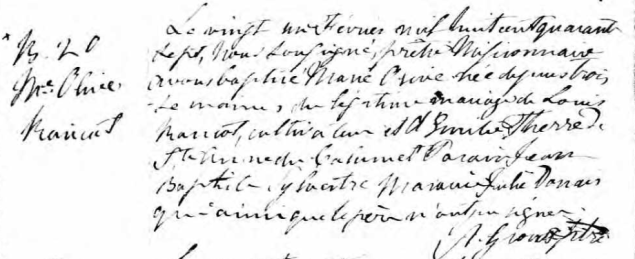 B. 20
Mie Olive
Rancot
Le vingt un Fevrier mil huit cent quarant
sept, Nous soussigné, prêtre Missionnaire
avons baptisé Marie Olive née depuis trois
semaines, du légitime mariage de Louis
Rancot, cultivateur et d' Emilie Therre de
Ste Anne du Calumet Parain Jean
Baptiste Sylvestre Maraine Julie Donais
qui ainsi que le père n'ont su signer.
Ptre